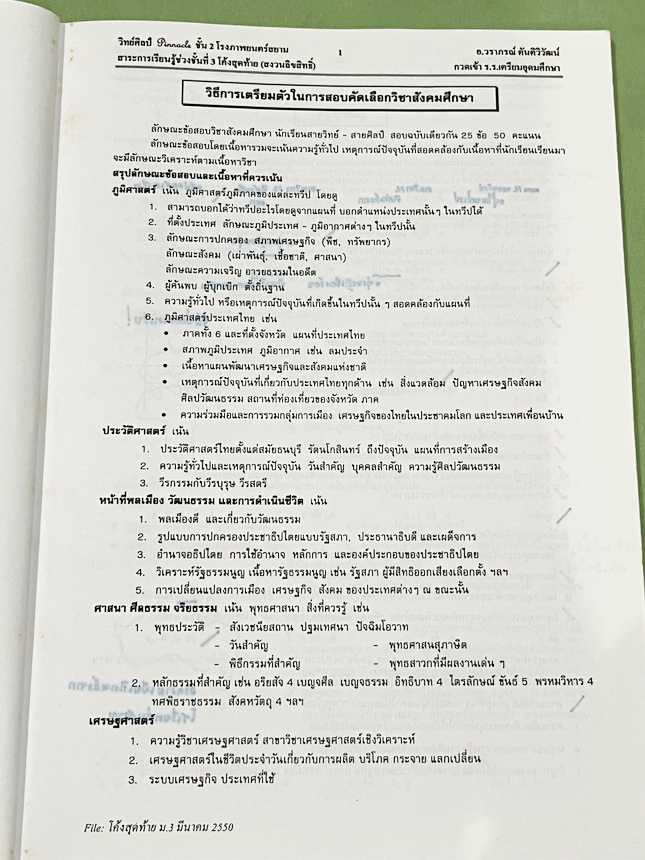 วิทย์ศิลป์ Pinnacle ชั้น 2 โรงภาพยนตร์สยาม 1 อ.วราภรณ์ ตันติวิวัฒน์
สาระการเรียนรู้ช่วงชั้นที่ 3 โค้งสุดท้าย (สงวนลิขสิทธิ์) กวดเข้า ร.ร.เตรียมอุดมศึกษา
วิธีการเตรียมตัวในการสอบคัดเลือกวิชาสังคมศึกษา
ลักษณะข้อสอบวิชาสังคมศึกษา นักเรียนสายวิทย์ - สายศิลป์ สอบฉบับเดียวกัน 25 ข้อ 50 คะแนน
ลักษณะข้อสอบโดยเนื้อหารวมจะเน้นความรู้ทั่วไป เหตุการณ์ปัจจุบันที่สอดคล้องกับเนื้อหาที่นักเรียนเรียนมา
จะมีลักษณะวิเคราะห์ตามเนื้อหาวิชา
สรุปลักษณะข้อสอบและเนื้อหาที่ควรเน้น
ภูมิศาสตร์ เน้น ภูมิศาสตร์ภูมิภาคของแต่ละทวีป โดยดู
1. สามารถบอกได้ว่าทวีปอะไรโดยดูจากแผนที่ บอกตำแหน่งประเทศนั้นๆ ในทวีปได้
2. ที่ตั้งประเทศ ลักษณะภูมิประเทศ - ภูมิอากาศต่างๆ ในทวีปนั้น
3. ลักษณะการปกครอง สภาพเศรษฐกิจ (พืช, ทรัพยากร)
ลักษณะสังคม (เผ่าพันธุ์, เชื้อชาติ, ศาสนา)
ลักษณะความเจริญ อารยธรรมในอดีต
4. ผู้ค้นพบ ผู้บุกเบิก ตั้งถิ่นฐาน
5. ความรู้ทั่วไป หรือเหตุการณ์ปัจจุบันที่เกิดขึ้นในทวีปนั้น ๆ สอดคล้องกับแผนที่
6. ภูมิศาสตร์ประเทศไทย เช่น
• ภาคทั้ง 6 และที่ตั้งจังหวัด แผนที่ประเทศไทย
• สภาพภูมิประเทศ ภูมิอากาศ เช่น ลมประจำ
• เนื้อหาแผนพัฒนาเศรษฐกิจและสังคมแห่งชาติ
• เหตุการณ์ปัจจุบันที่เกี่ยวกับประเทศไทยทุกด้าน เช่น สิ่งแวดล้อม ปัญหาเศรษฐกิจสังคม
ศิลปวัฒนธรรม สถานที่ท่องเที่ยวของจังหวัด ภาค
• ความร่วมมือและการรวมกลุ่มการเมือง เศรษฐกิจของไทยในประชาคมโลก และประเทศเพื่อนบ้าน
ประวัติศาสตร์ เน้น
1. ประวัติศาสตร์ไทยตั้งแต่สมัยธนบุรี รัตนโกสินทร์ ถึงปัจจุบัน แผนที่การสร้างเมือง
2. ความรู้ทั่วไปและเหตุการณ์ปัจจุบัน วันสำคัญ บุคคลสำคัญ ความรู้ศิลปวัฒนธรรม
3. วีรกรรมกับวีรบุรุษ วีรสตรี
หน้าที่พลเมือง วัฒนธรรม และการดำเนินชีวิต เน้น
1. พลเมืองดี และเกี่ยวกับวัฒนธรรม
2. รูปแบบการปกครองประชาธิปไตยแบบรัฐสภา, ประธานาธิบดี และเผด็จการ
3. อำนาจอธิปไตย การใช้อำนาจ หลักการ และองค์ประกอบของประชาธิปไตย
4. วิเคราะห์รัฐธรรมนูญ เนื้อหารัฐธรรมนูญ เช่น รัฐสภา ผู้มีสิทธิออกเสียงเลือกตั้ง ฯลฯ
5. การเปลี่ยนแปลงการเมือง เศรษฐกิจ สังคม ของประเทศต่างๆ ณ ขณะนั้น
ศาสนา ศีลธรรม จริยธรรม เน้น พุทธศาสนา สิ่งที่ควรรู้ เช่น
1. พุทธประวัติ - สังเวชนียสถาน ปฐมเทศนา ปัจฉิมโอวาท
- วันสำคัญ - พุทธศาสนสุภาษิต
- พิธีกรรมที่สำคัญ - พุทธสาวกที่มีผลงานเด่น ๆ
2. หลักธรรมที่สำคัญ เช่น อริยสัจ 4 เบญจศีล เบญจธรรม อิทธิบาท 4 ไตรลักษณ์ ขันธ์ 5 พรหมวิหาร 4
ทศพิธราชธรรม สังคหวัตถุ 4 ฯลฯ
เศรษฐศาสตร์
1. ความรู้วิชาเศรษฐศาสตร์ สาขาวิชาเศรษฐศาสตร์เชิงวิเคราะห์
2. เศรษฐศาสตร์ในชีวิตประจำวันเกี่ยวกับการผลิต บริโภค กระจาย แลกเปลี่ยน
3. ระบบเศรษฐกิจ ประเทศที่ใช้
File: โค้งสุดท้าย ม.3 มีนาคม 2550